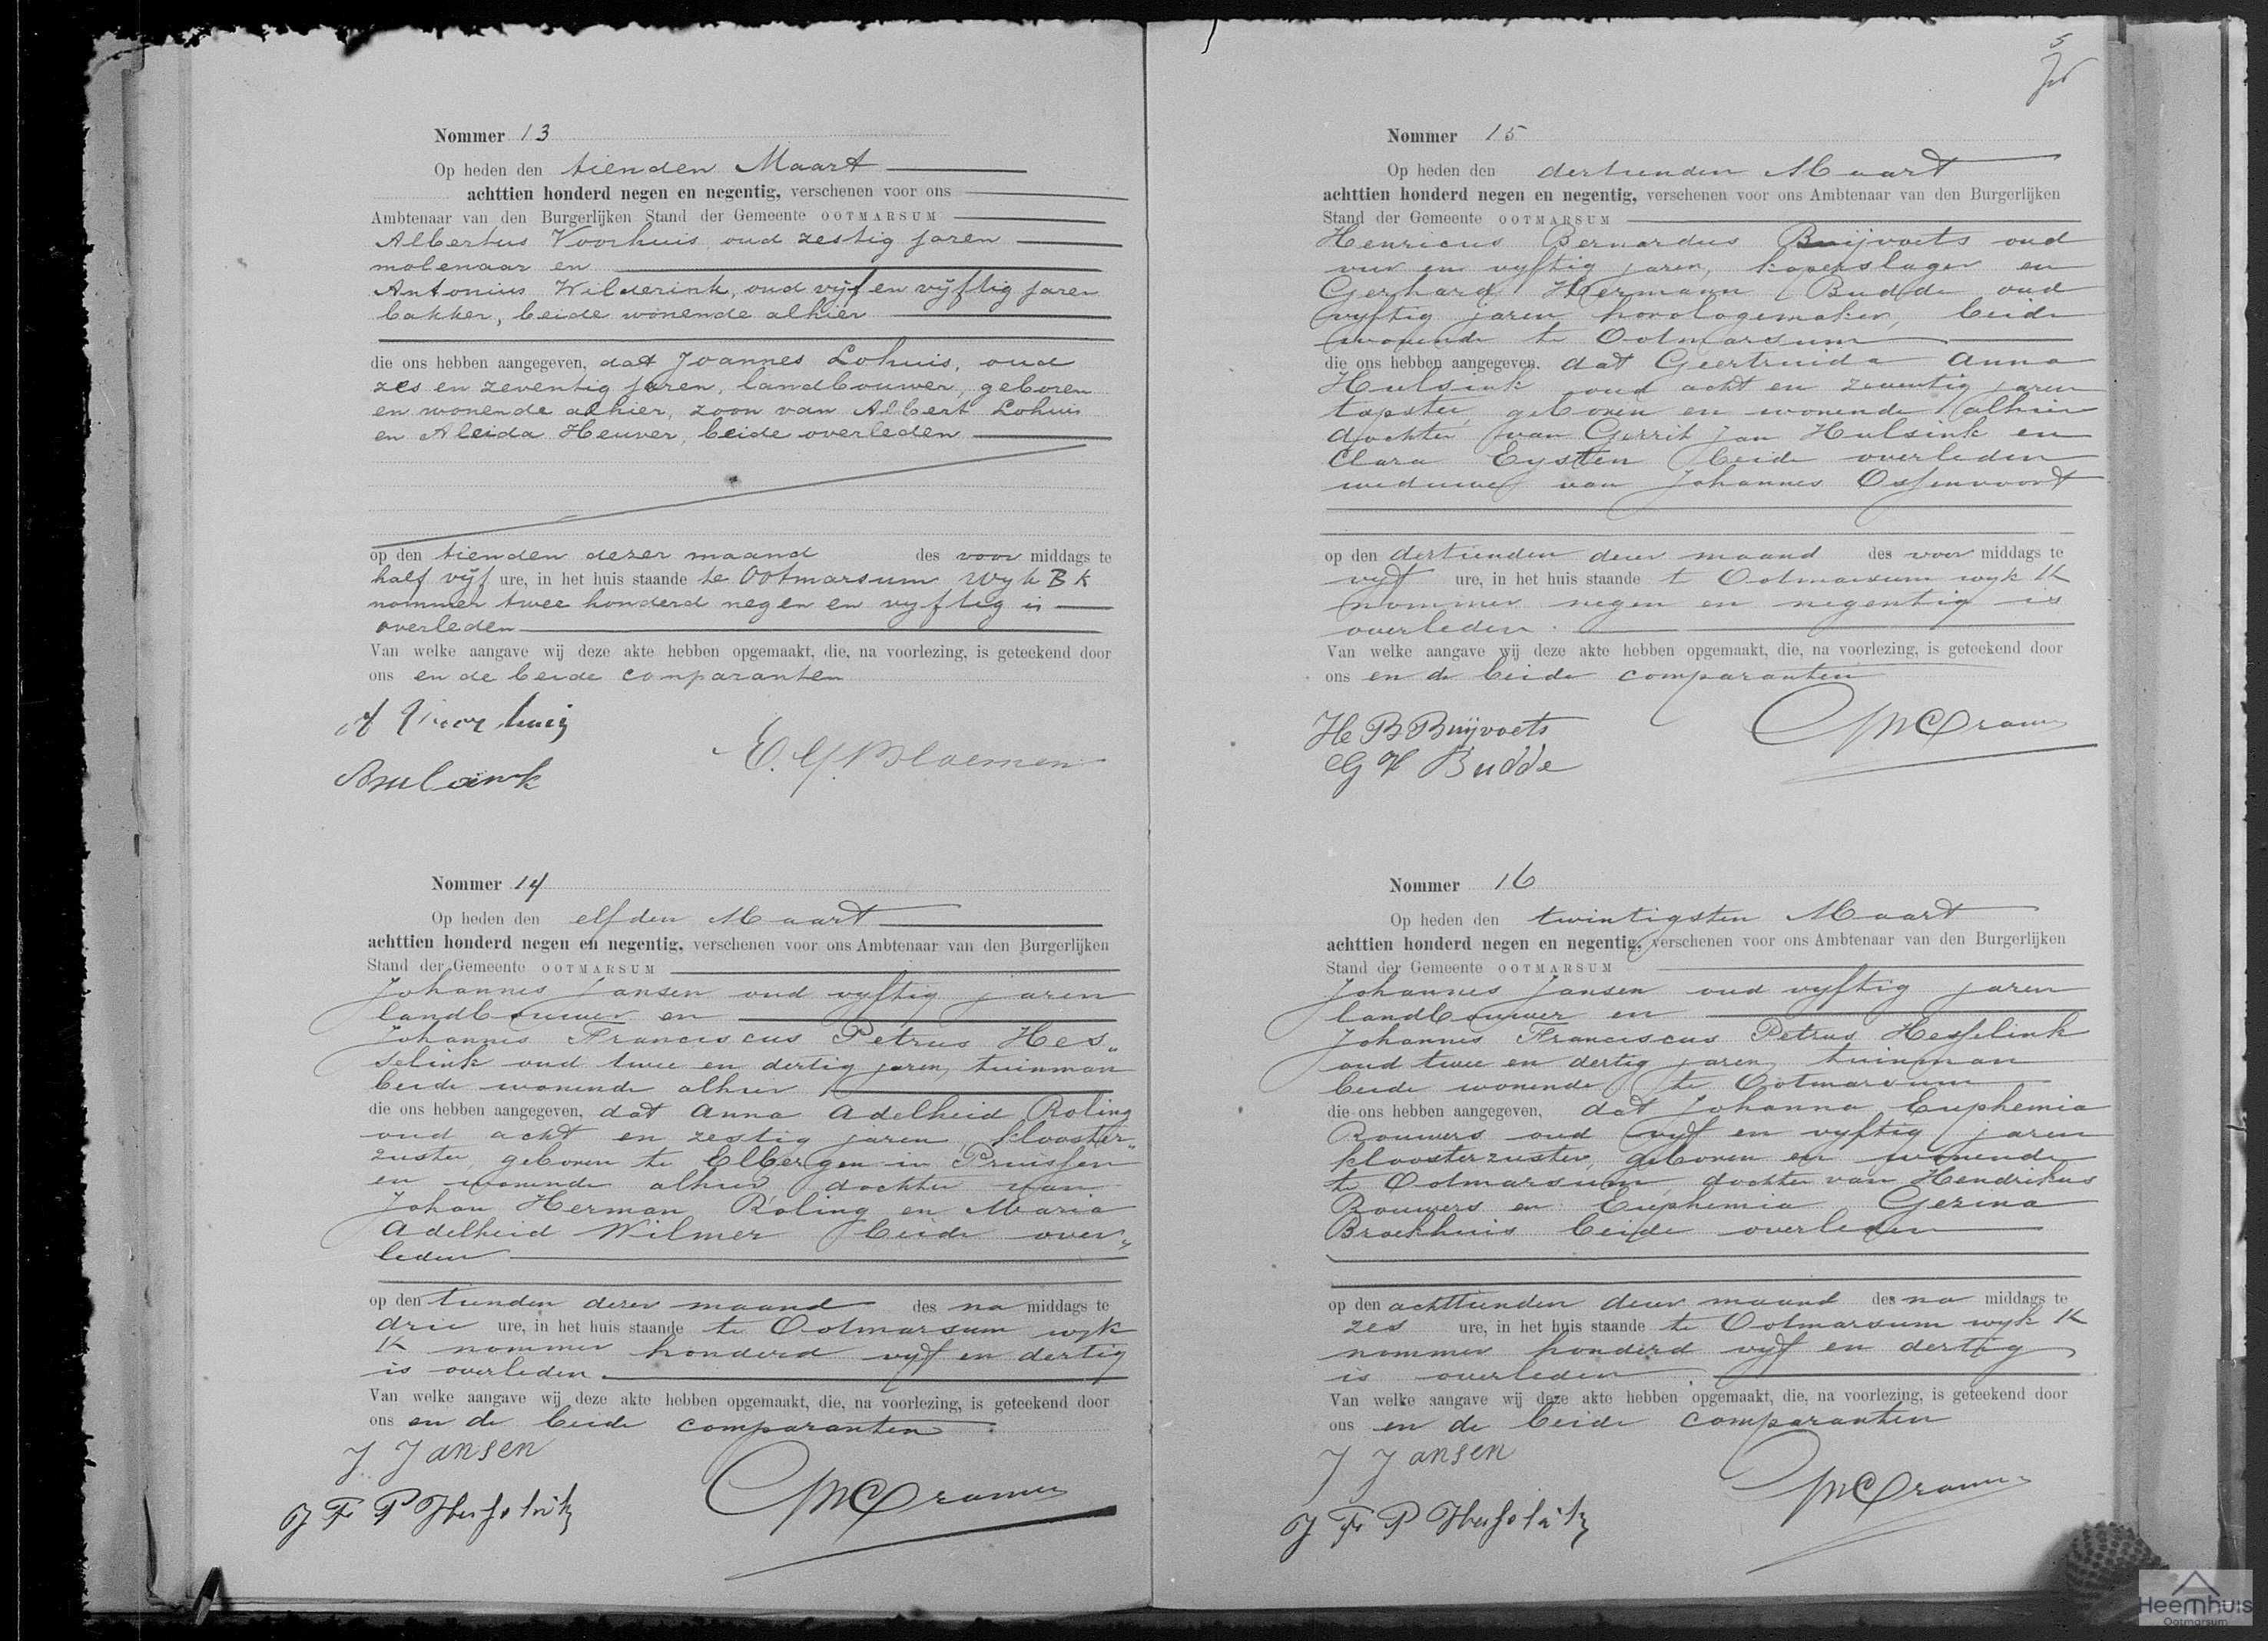 Nommer 13
Op heden den tienden Maart
achttien honderd negen en negentig, verschenen voor ons
Ambtenaar van den Burgerlijken Stand der Gemeente OOTMARSUM
Albertus Voorhuis, oud zestig jaren
molenaar en
Antonius Wilderink, oud vijf en vijftig jaren
bakker, beide wonende alhier
die ons hebben aangegeven, dat Joannes Lohuis, oud
zes en zeventig jaren, landbouwer, geboren
en wonende alhier, zoon van Albert Lohuis
en Aleida Heuver, beide overleden
op den tienden dezer maand des voor middags te
half vijf ure, in het huis staande te Ootmarsum Wyk B K
nommer twee honderd negen en vyftig is
overleden
Van welke aangave wij deze akte hebben opgemaakt, die, na voorlezing, is geteekend door
ons en de beide comparanten
A Voorhuis
E. G. Bloemen
Nommer 14
Op heden den elfden Maart
achttien honderd negen en negentig, verschenen voor ons Ambtenaar van den Burgerlijken
Stand der Gemeente OOTMARSUM
Johannes Jansen oud vyftig jaren
landbouwer en
Johannes Franciscus Petrus Hes„
selink oud twee en dertig jaren, tuinman
beide wonende alhier
die ons hebben aangegeven, dat Anna Adelheid Roling
oud acht en zestig jaren, klooster„
zuster, geboren te Elbergen in Pruissen
en wonende alhier dochter van
Johan Herman Röling en Maria
Adelheid Wilmer beide over„
leden
op den tienden dezer maand des na middags te
drie ure, in het huis staande te Ootmarsum wyk
K nommer honderd vyf en dertig
is overleden.
Van welke aangave wij deze akte hebben opgemaakt, die, na voorlezing, is geteekend door
ons en de beide comparanten
J Jansen
J F P Hesselink
5
Nommer 15
Op heden den dertienden Maart
achttien honderd negen en negentig, verschenen voor ons Ambtenaar van den Burgerlijken
Stand der Gemeente OOTMARSUM
Henricus Bernardus Buijvoets oud
vier en vyftig jaren, koperslager en
Gerhard Hermann Budde oud
vyftig jaren horologemaker, beide
wonende te Ootmarsum
die ons hebben aangegeven, dat Geertruida Anna
Hulsink oud acht en zeventig jaren
tapster, geboren en wonende alhier
dochter van Gerrit Jan Hulsink en
Clara Eysten beide overleden
weduwe van Johannes Ossenvoort
op den dertienden dezer maand des voor middags te
vyf ure, in het huis staande te Ootmarsum wyk K
nommer negen en negentig is
overleden.
Van welke aangave wij deze akte hebben opgemaakt, die, na voorlezing, is geteekend door
ons en de beide comparanten
He B Buijvoets
G H Budde
Nommer 16
Op heden den twintigsten Maart
achttien honderd negen en negentig, verschenen voor ons Ambtenaar van den Burgerlijken
Stand der Gemeente OOTMARSUM
Johannes Jansen oud vyftig jaren
landbouwer en
Johannes Franciscus Petrus Hesselink
oud twee en dertig jaren, tuinman
beide wonende te Ootmarsum
die ons hebben aangegeven, dat Johanna Euphemia
Rouwers oud vyf en vyftig jaren
kloosterzuster, geboren en wonende
te Ootmarsum, dochter van Hendrikus
Rouwers en Euphemia Gezina
Broekhuis beide overleden
op den achttienden dezer maand des na middags te
zes ure, in het huis staande te Ootmarsum wyk K
nommer honderd vyf en dertig
is overleden.
Van welke aangave wij deze akte hebben opgemaakt, die, na voorlezing, is geteekend door
ons en de beide comparanten
J Jansen
J F P Hesselink
Heemhuis
Ootmarsum